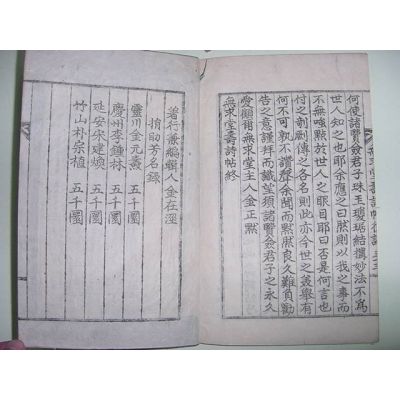 何使諸賢僉君子珠玉瓊琚結撰妙法不爲
世人知之也耶余應之曰然則以我之事而
不無嗤點於世人之眼目耶曰否是何言也
付之剞劂傳之各名則此亦今世之盛擧有
何不可孰不讚聲余聞而黙然良久難負勤
告之意謹拜而識望須諸賢僉君子之永久
愛顧爾無求堂主人金正黙
無求堂壽詩帖終
著行兼編輯人金在涇
捐助芳名錄
靈川金元燾 五千圜
慶州李鍾林 五千圜
延安宋建煥 五千圜
竹山朴宗植 五千圜